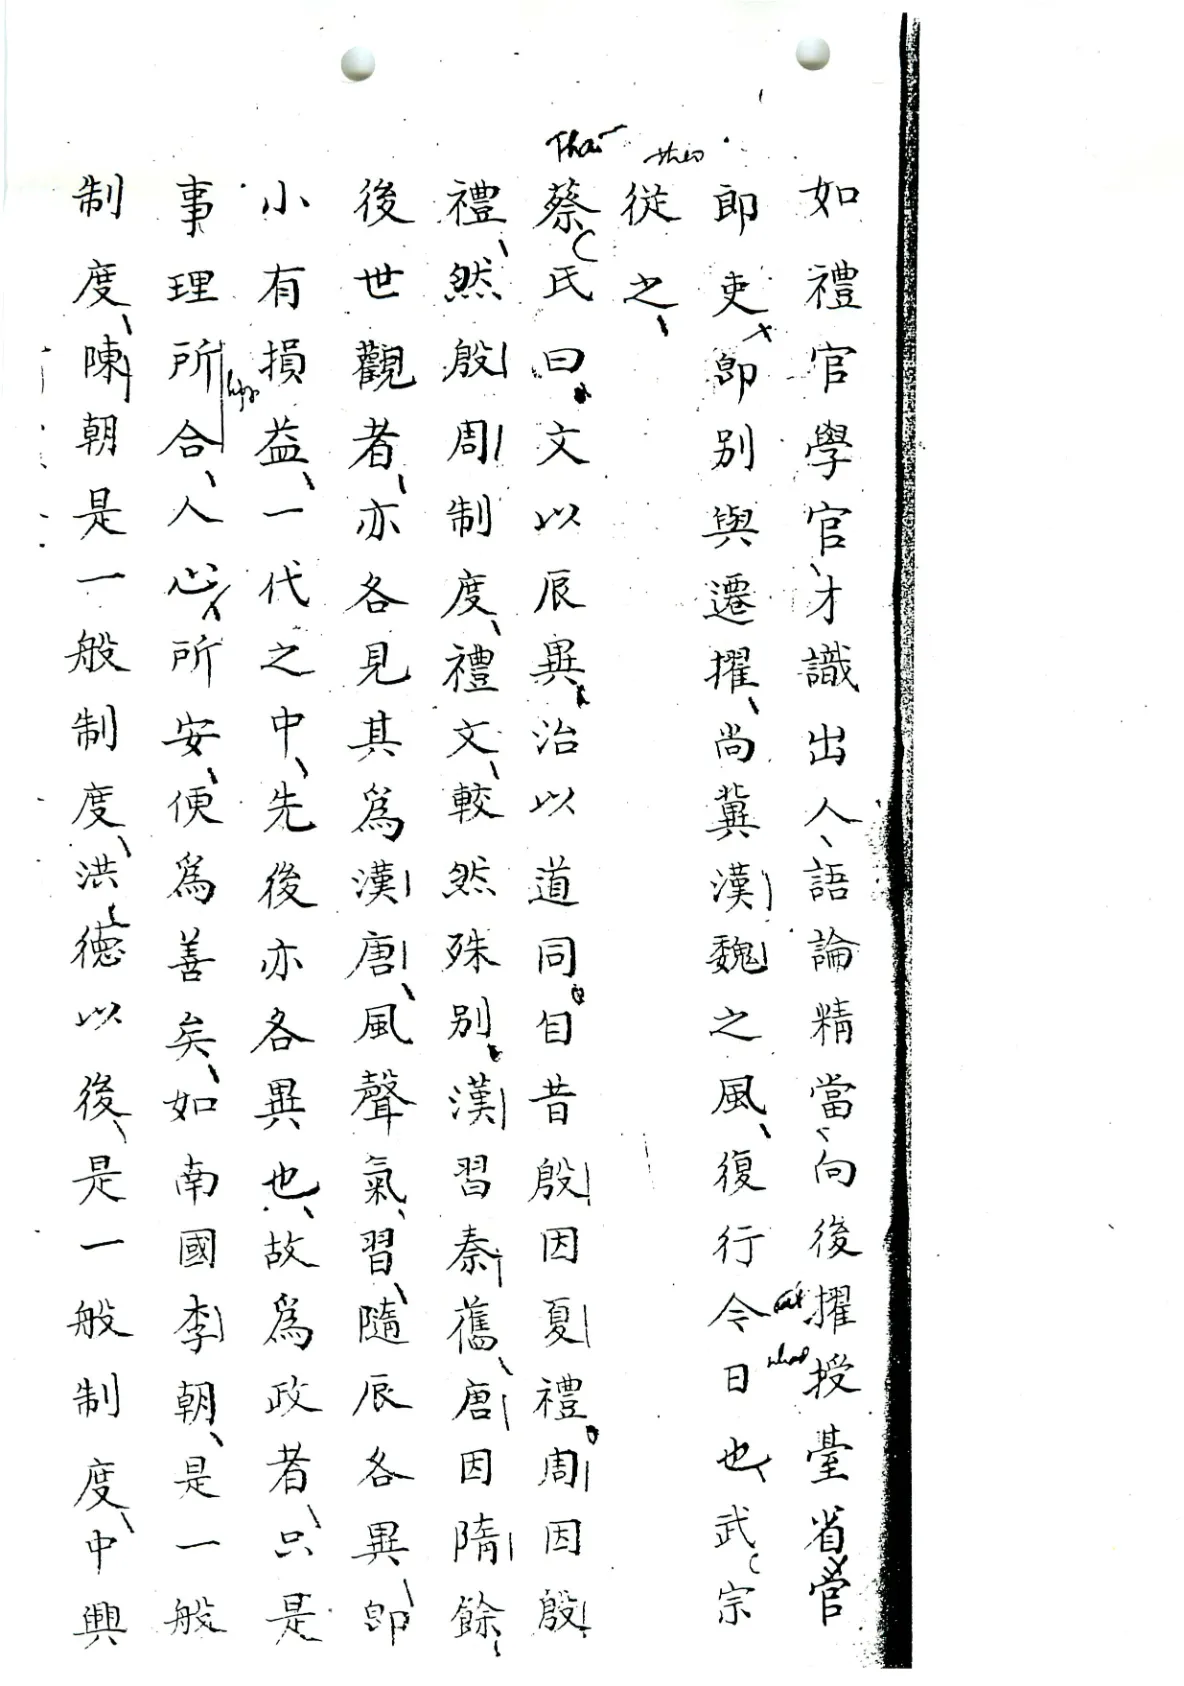 如禮官學官才識出人語論精當向後擢授臺省官
郎吏即別與遷擢尚冀漢魏之風復行今日也武宗
從之
蔡氏曰文以辰異治以道同自昔殷因夏禮周因殷
禮然殷周制度禮文較然殊別漢習秦舊唐因隋餘
後世觀者亦各見其爲漢唐風聲氣習隨辰各異即
小有損益一代之中先後亦各異也故爲政者只是
事理所合人心所安便爲善矣如南國李朝是一般
制度陳朝是一般制度洪德以後是一般制度中興
theo
hợp